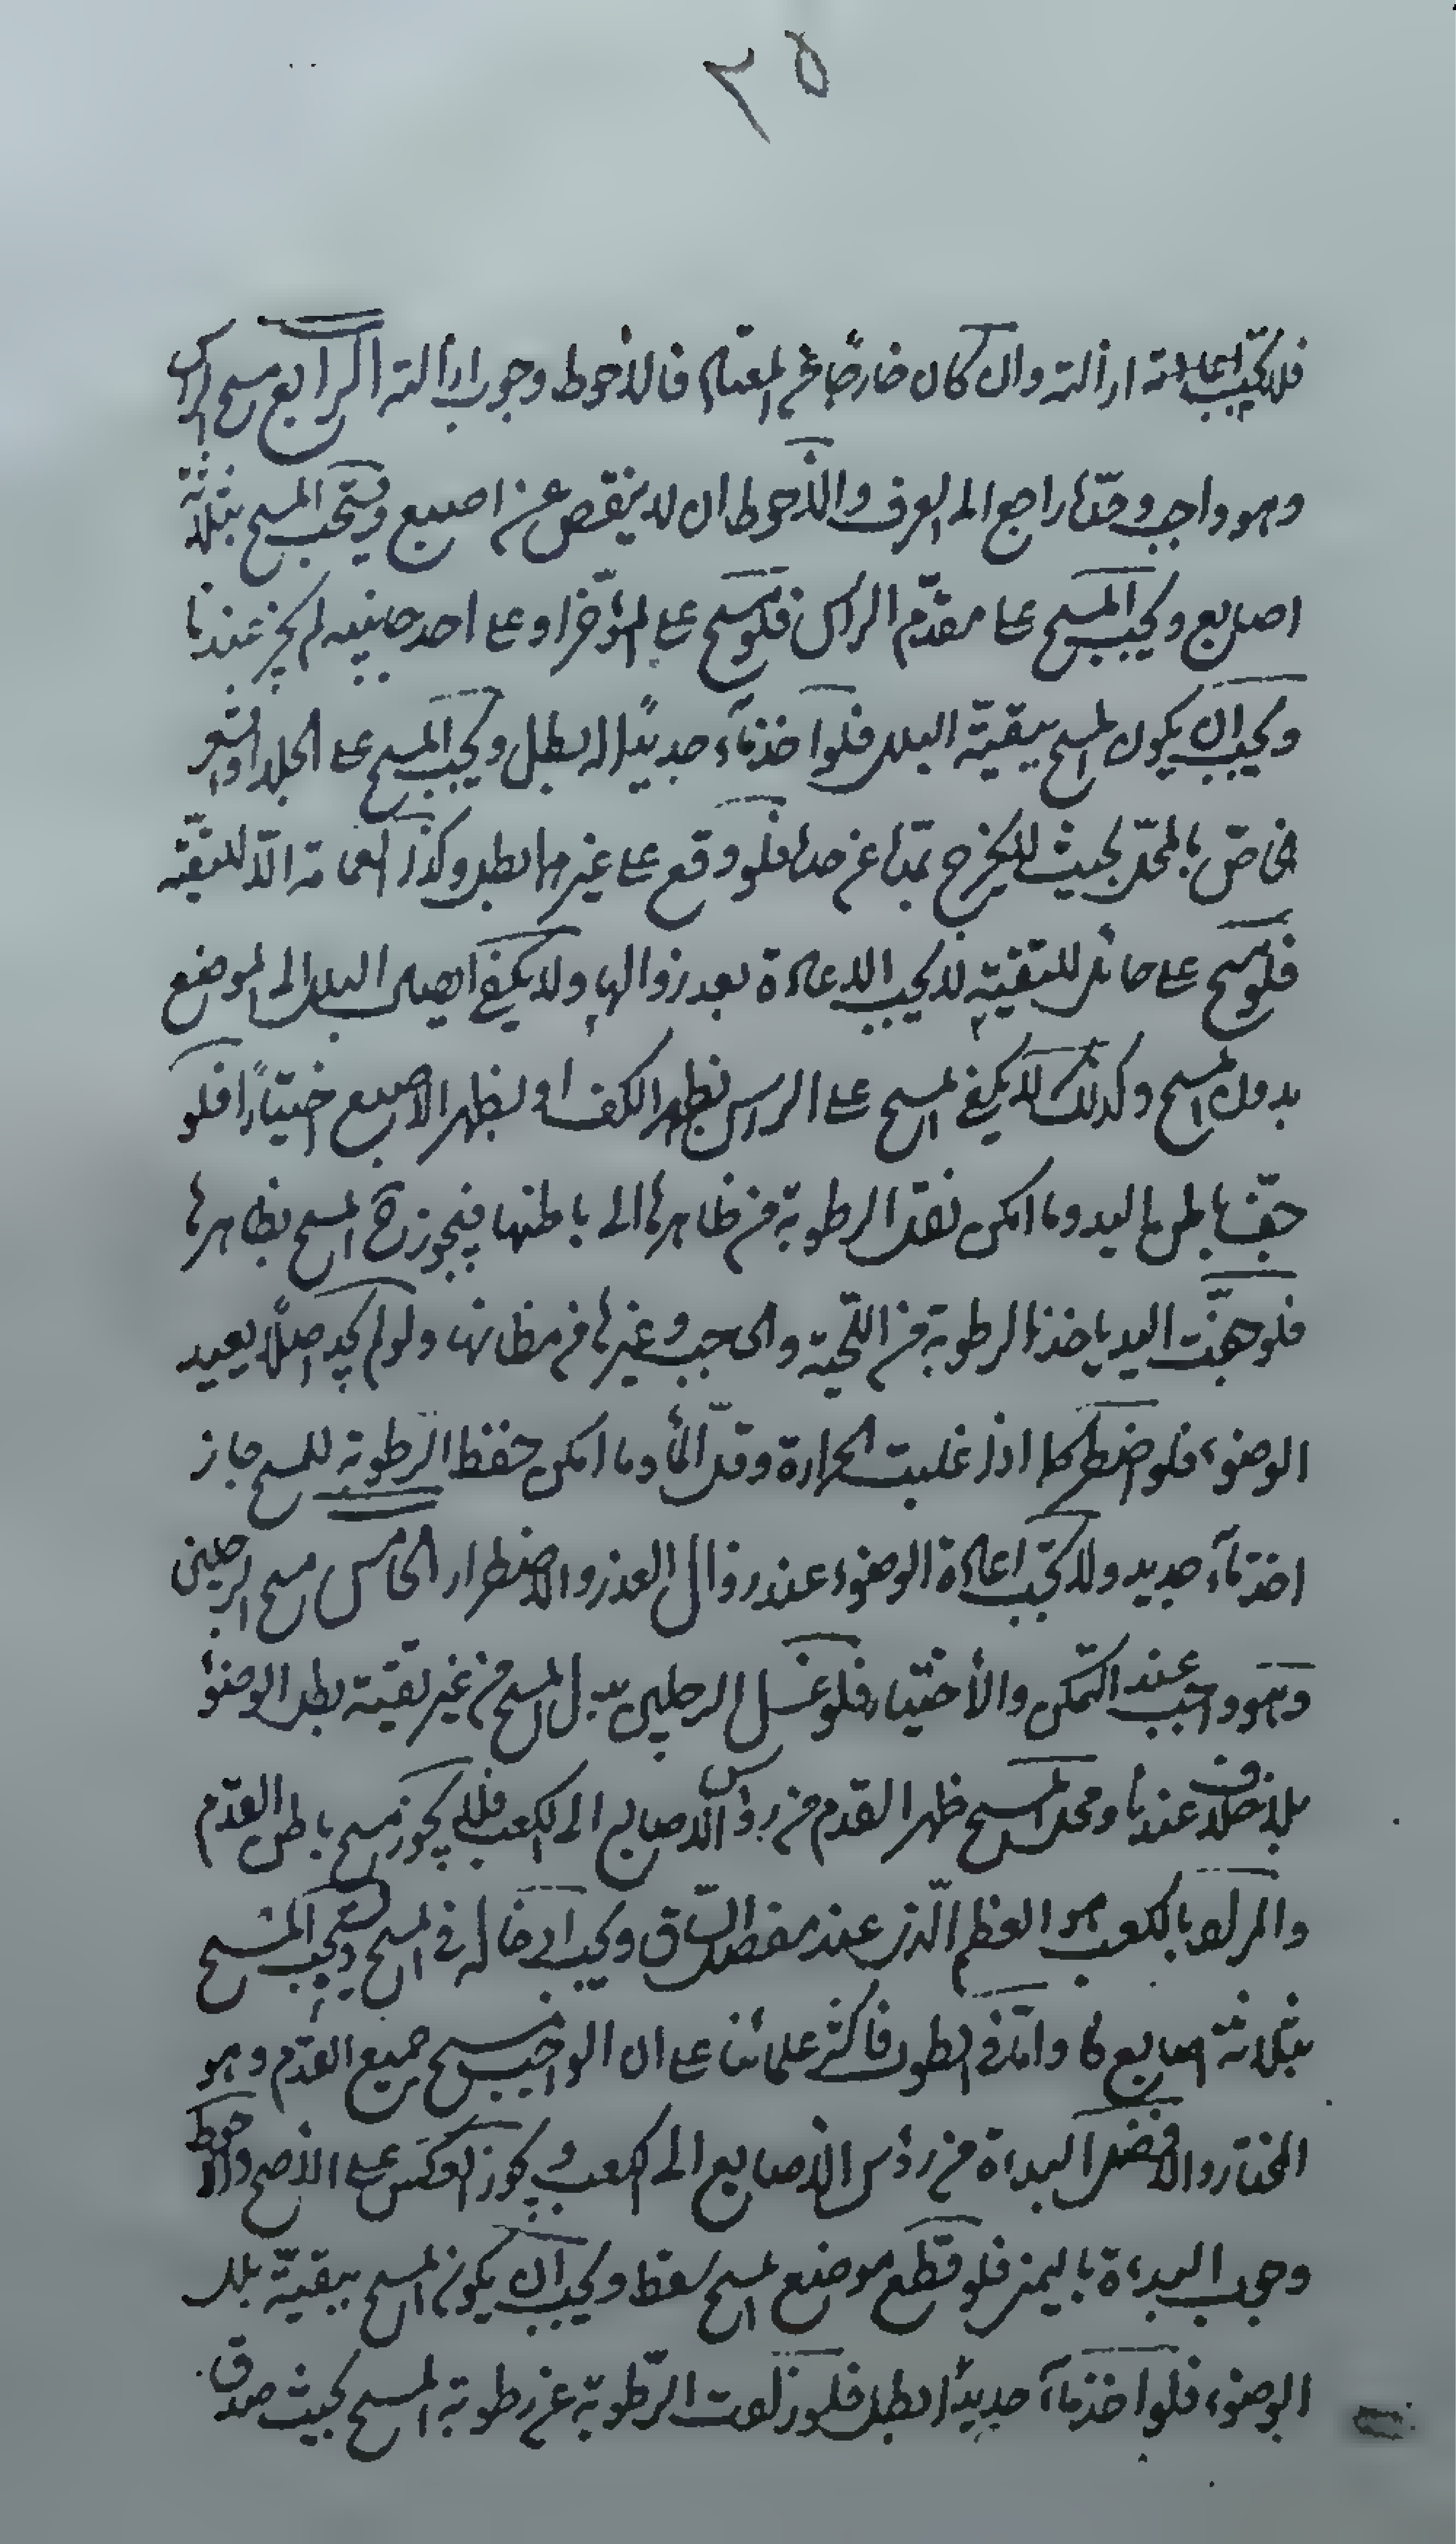 ٢٥
فلا يجب ازالته وان كان خارجًا عن المعتاد فالأحوط وجوب ازالته الرابع مسح الراس
وهو واجب وحدّه راجع الى العرف والأحوط ان لا ينقص عن اصبع ويستحب المسح بثلاثة
اصابع ويجب المسح على مقدّم الراس فلو مسح على المؤخر او على احد جانبيه لم يجز عندنا
ويجب ان يكون المسح ببقيّة البلل فلو اخذ مآء جديدًا له بطل ويجب المسح على الجلد او الشعر
المختصّ بالمحلّ بحيث لا يخرج بمدّه عن حده فلو وقع على غيرهما بطل وكذا العمامة الّا للتقيّة
فلو مسح على حائل للتقيّة لا يجب الاعادة بعد زوالها ولا يكفي ايصال البلل الى الموضع
بدون المسح وكذلك لا يكفي المسح على الراس بظهر الكف او بظهر الاصبع اختيارًا فلو
جفّ باطن اليد وما امكن نقل الرطوبة من ظاهرها الى باطنها فيجوز ح المسح بظاهرها
فلو جفّت اليد ياخذ الرطوبة من اللّحية والحاجب وغيرها من مظانها ولو لم يجد اصلًا يعيد
الوضوء فلو اضطر كما اذا غلبت الحرارة وقلّ المأ وما امكن حفظ الرطوبة للمسح جاز
اخذ مآء جديد ولا تجب اعادة الوضوء عند زوال العذر والاضطرار الخامس مسح الرجلين
وهو واجب عند التمكن والأختيار فلو غسل الرجلين بدل المسح من غير تقيّة بطل الوضوء
بلا خلاف عندنا ومحل المسح ظهر القدم من رؤس الاصابع الى الكعب فلا يجوز مسح باطن القدم
والمراد بالكعب هو العظم الّذى عند مفصل السّاق ويجب ادخاله فى المسح ويستحب المسح
بثلاثة اصابع وامّا فى الطول فاكثر علمائنا على ان الواجب مسح جميع القدم وهو
المختار والافضل البداة من رؤس الأصابع الى الكعب ويجوز العكس على الأصح والأحوط
وجوب البداءة باليمنى فلو قطع موضع المسح سقط ويجب ان يكون المسح ببقيّة بلل
الوضوء فلو اخذ مآء جديدًا بطل فلو زادت الرّطوبة عن رطوبة المسح بحيث صدق